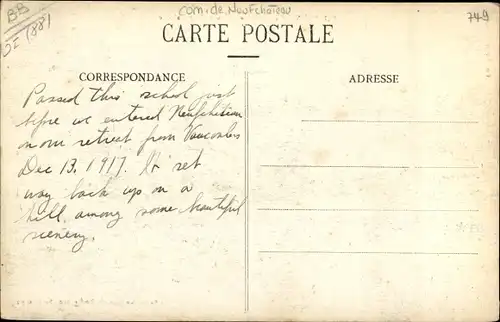 BB
com. de Neufchateau
749
CARTE POSTALE
CORRESPONDANCE
ADRESSE
Passed this school just
before we entered Neufchateau
on our retreat from Vaucouleurs
Dec 13, 1917. It set
way back up on a
hill among some beautiful
scenery.